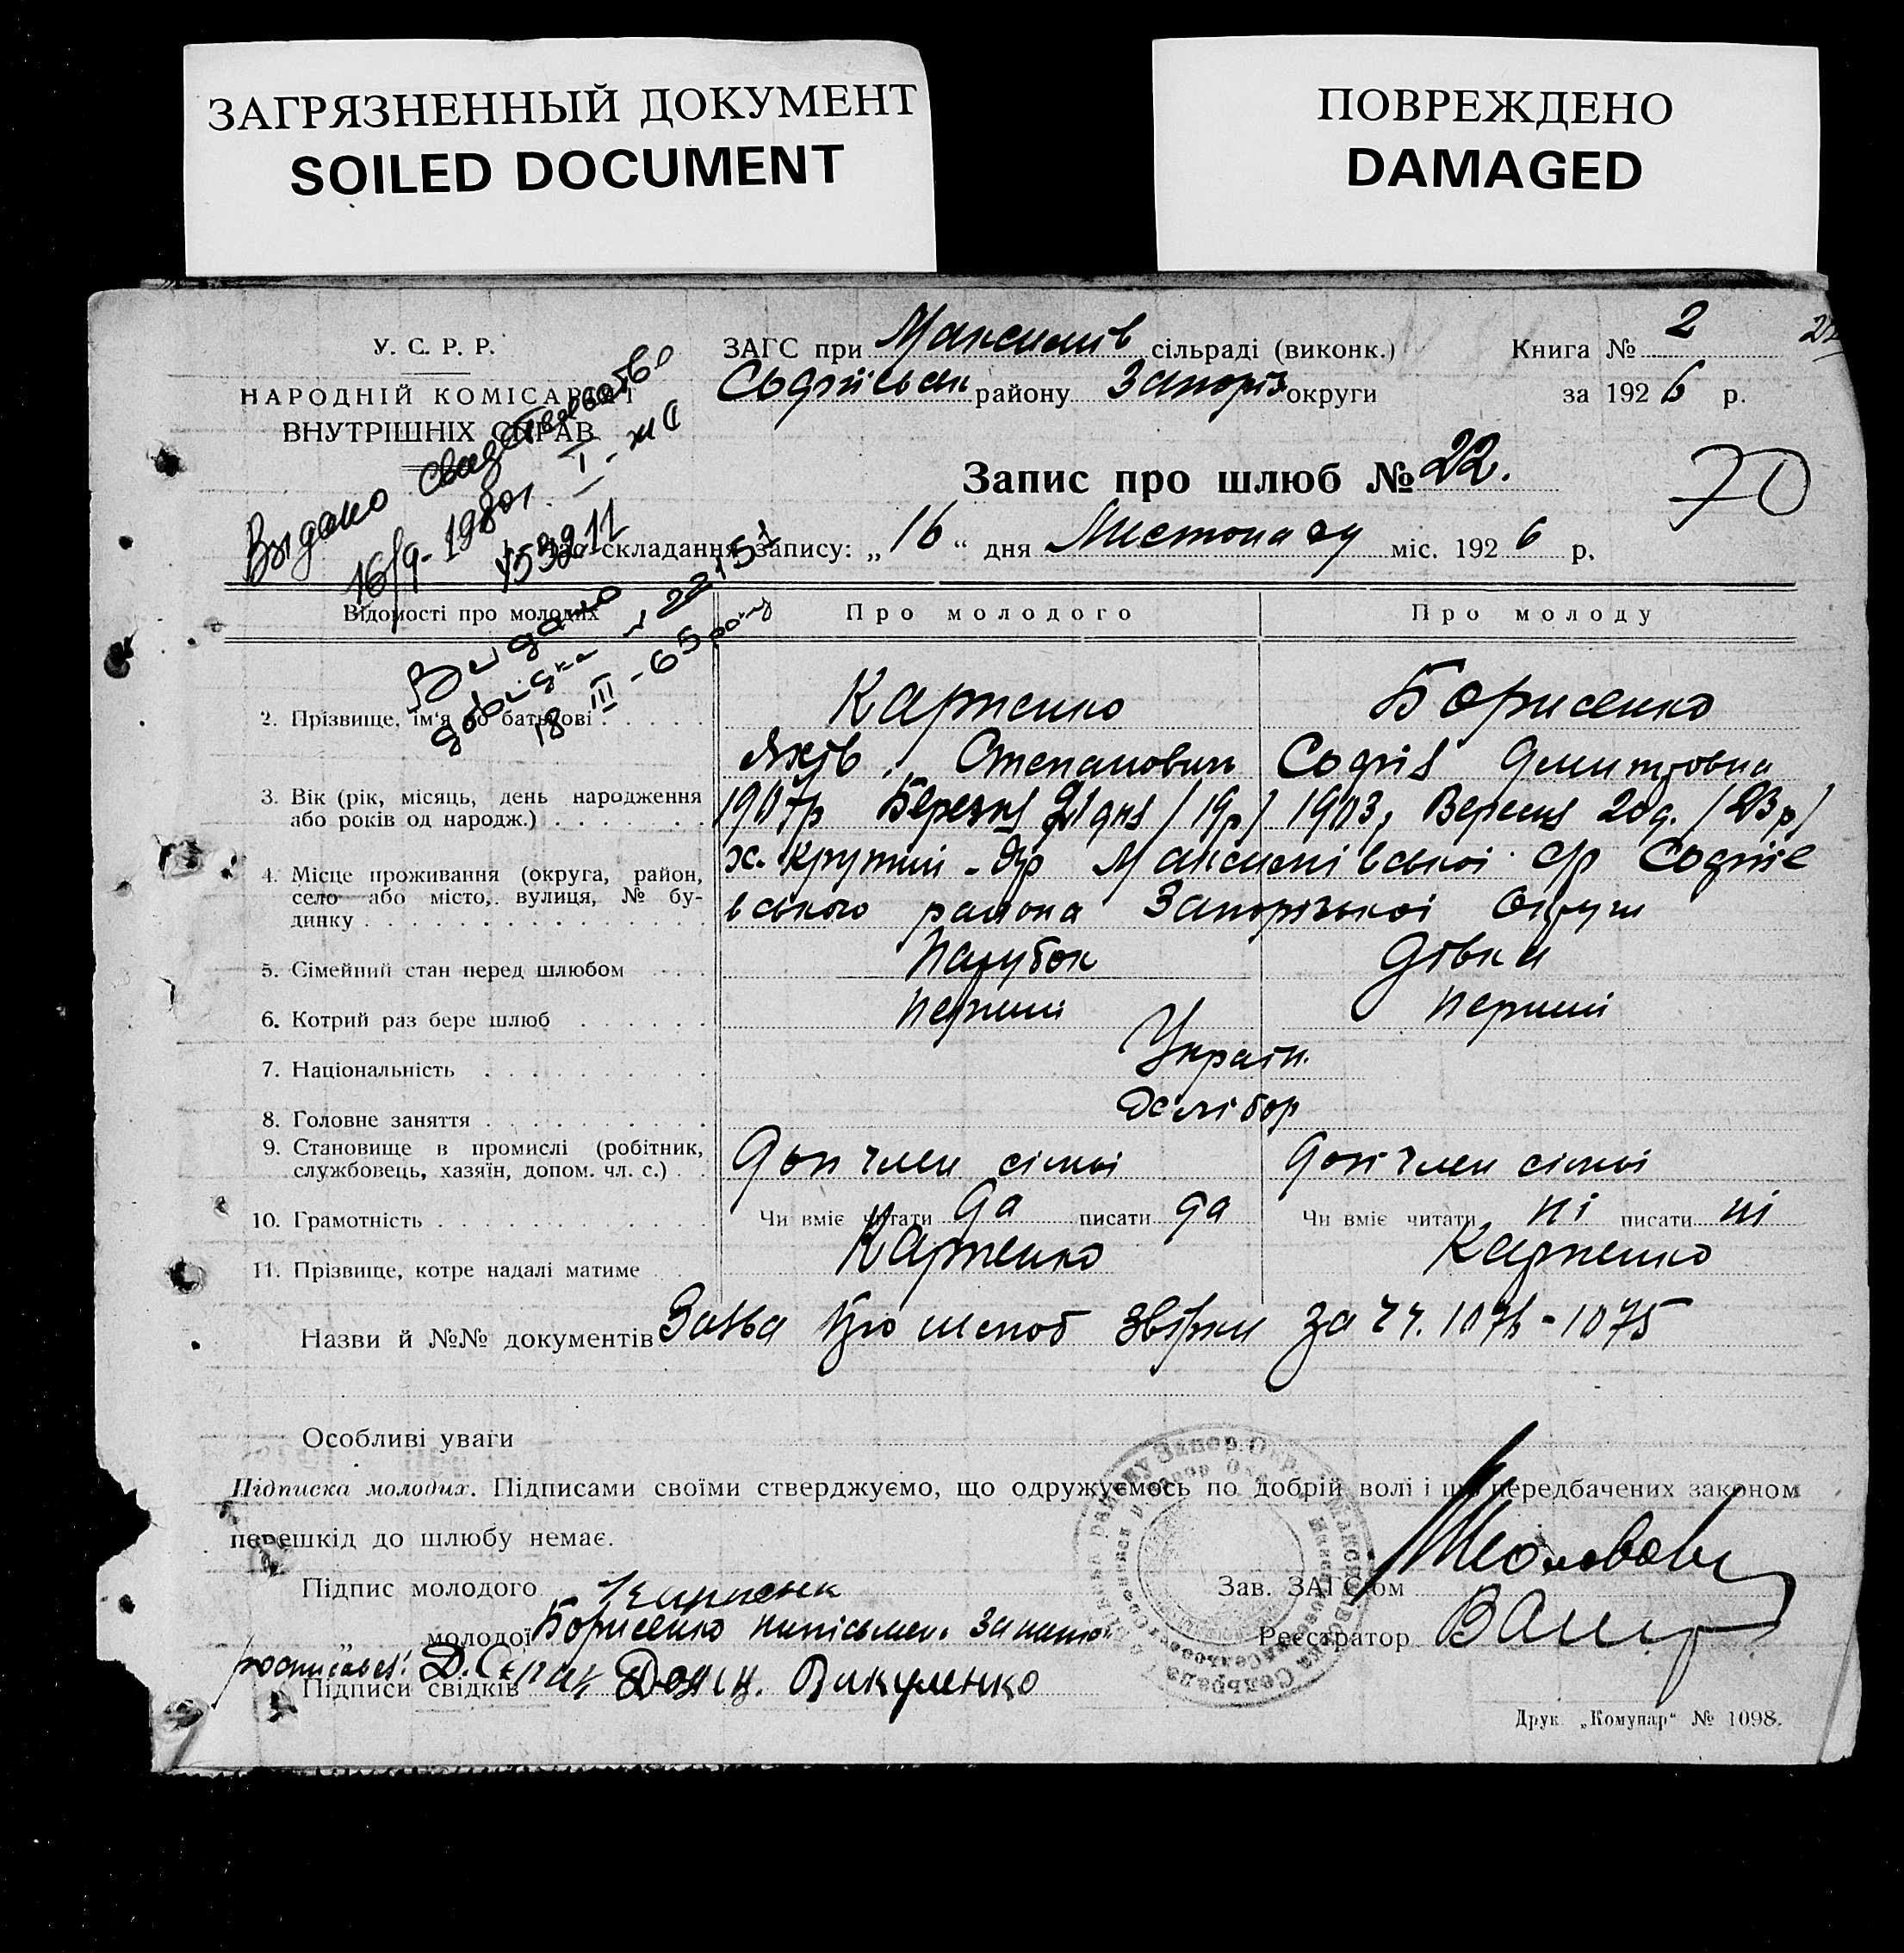 ЗАГРЯЗНЕННЫЙ ДОКУМЕНТ
SOILED DOCUMENT
ПОВРЕЖДЕНО
DAMAGED
У. С. Р. Р.
НАРОДНІЙ КОМІСАРІЯТ
ВНУТРІШНІХ СПРАВ
ЗАГС при Максимів сільраді (виконк.) Книга № 2
Софіївськ району Запоріз округи за 1926 р.
Выдано свидетельство
16/9-1980г. I-ЖС
Запис про шлюб № 22.
70
Час складання запису: „16“ дня Листопаду міс. 1926 р.
Видано
довідка
18 III-65 року
Відомості про молодих Про молодого Про молоду
2. Прізвище, ім'я по батькові Карпенко Борисенко
Яків Степанович Софія Дмитровна
3. Вік (рік, місяць, день народження або років од народж.) 1907р Березня 21 дня /19р/ 1903, Вересня 20д. /23р/
4. Місце проживання (округа, район, х. Крутий-Яр Максимівської с/р Софіїв
село або місто, вулиця, № бу-
динку вського района Запорізької Округи
5. Сімейний стан перед шлюбом Парубок Дівка
6. Котрий раз бере шлюб Перший Перший
7. Національність Україн.
8. Головне заняття Хлібор
9. Становище в промислі (робітник,
службовець, хазяїн, допом. чл. с.) Доп член сімьі Доп член сімьі
10. Грамотність Чи вміє читати да писати да Чи вміє читати ні писати ні
11. Прізвище, котре надалі матиме Карпенко Карпенко
Назви й №№ документів Заява про шлюб звірки за чч. 1074-1075
Особливі уваги
Підписка молодих. Підписами своїми стверджуємо, що одружуємось по добрій волі і що передбачених законом
перешкід до шлюбу немає.
Підпис молодого Карпенк Зав. ЗАГС'ом
„ молодої Борисенко неписьмен. за неї Реєстратор
Підписи свідків Викуленко
Друк „Комунар“ № 1098.